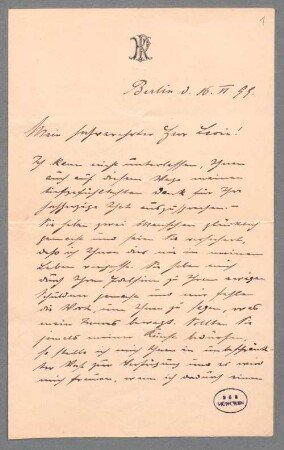 1
Berlin d. 16. VI 98.
Mein sehr verehrter Herr Levi!
Ich kann nicht unterlassen, Ihnen
auch auf diesem Wege meinen
tiefgefühltesten Dank für Ihr
That auszusprechen.
Sie haben zwei Menschen glücklich
gemacht und seien Sie versichert,
daß ich Ihnen dies nie in meinem
Leben vergesse. Sie haben mich
durch Ihren Edelsinn zu Ihrem ewigen
Schuldner gemacht und mir fehlen
die Worte, um Ihnen zu sagen, was
mein Inneres bewegt. Sollten Sie
jemals meiner Künste bedürfen
so stelle ich mich Ihnen in
zur Verfügung und es wird
mich freuen, wenn ich dadurch einen
BSB
MÜNCHEN